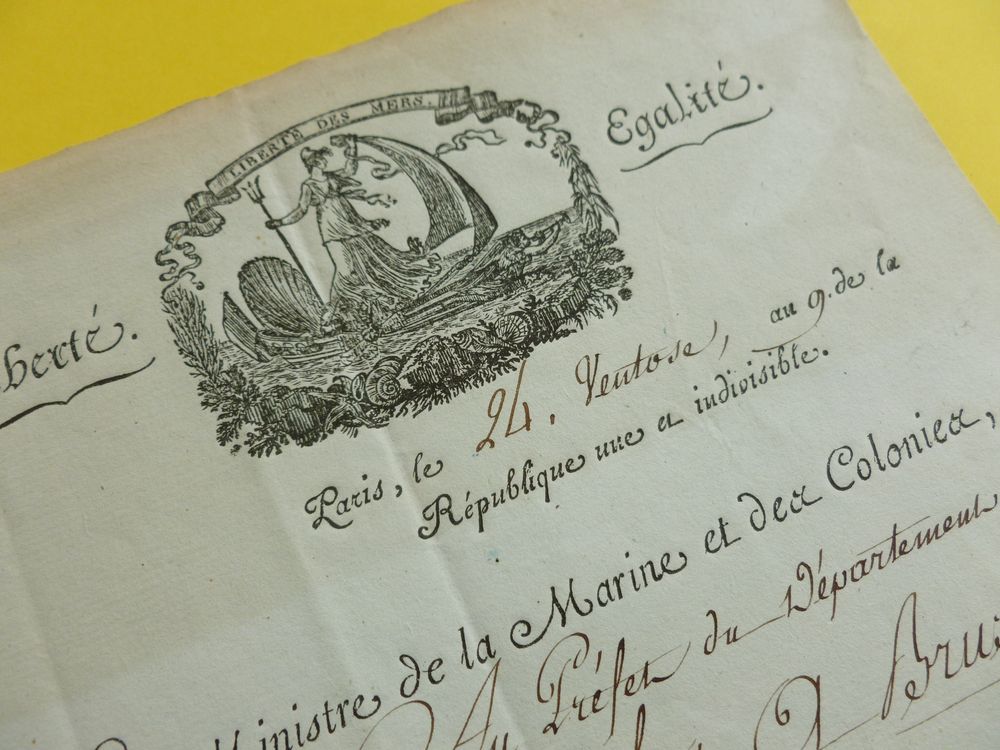 LIBERTÉ DES MERS.
berté. Egalité.
Paris, le 24. Ventose, an 9. de la
République une et indivisible.
Ministre de la Marine et des Colonies,
Au Préfet du Département